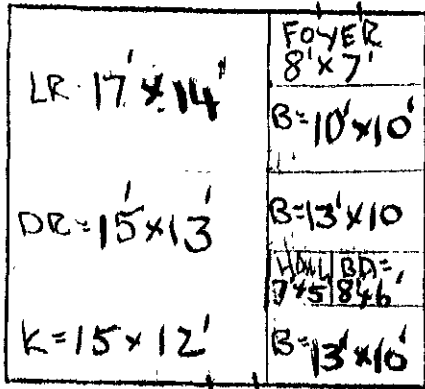 LR. 17' x 14'
DR = 15' x 13'
K = 15 x 12'
FOYER
8' x 7'
B = 10' x 10'
B = 13' x 10
HALL
7'x5
BA =
8'x6'
B = 13' x 10'